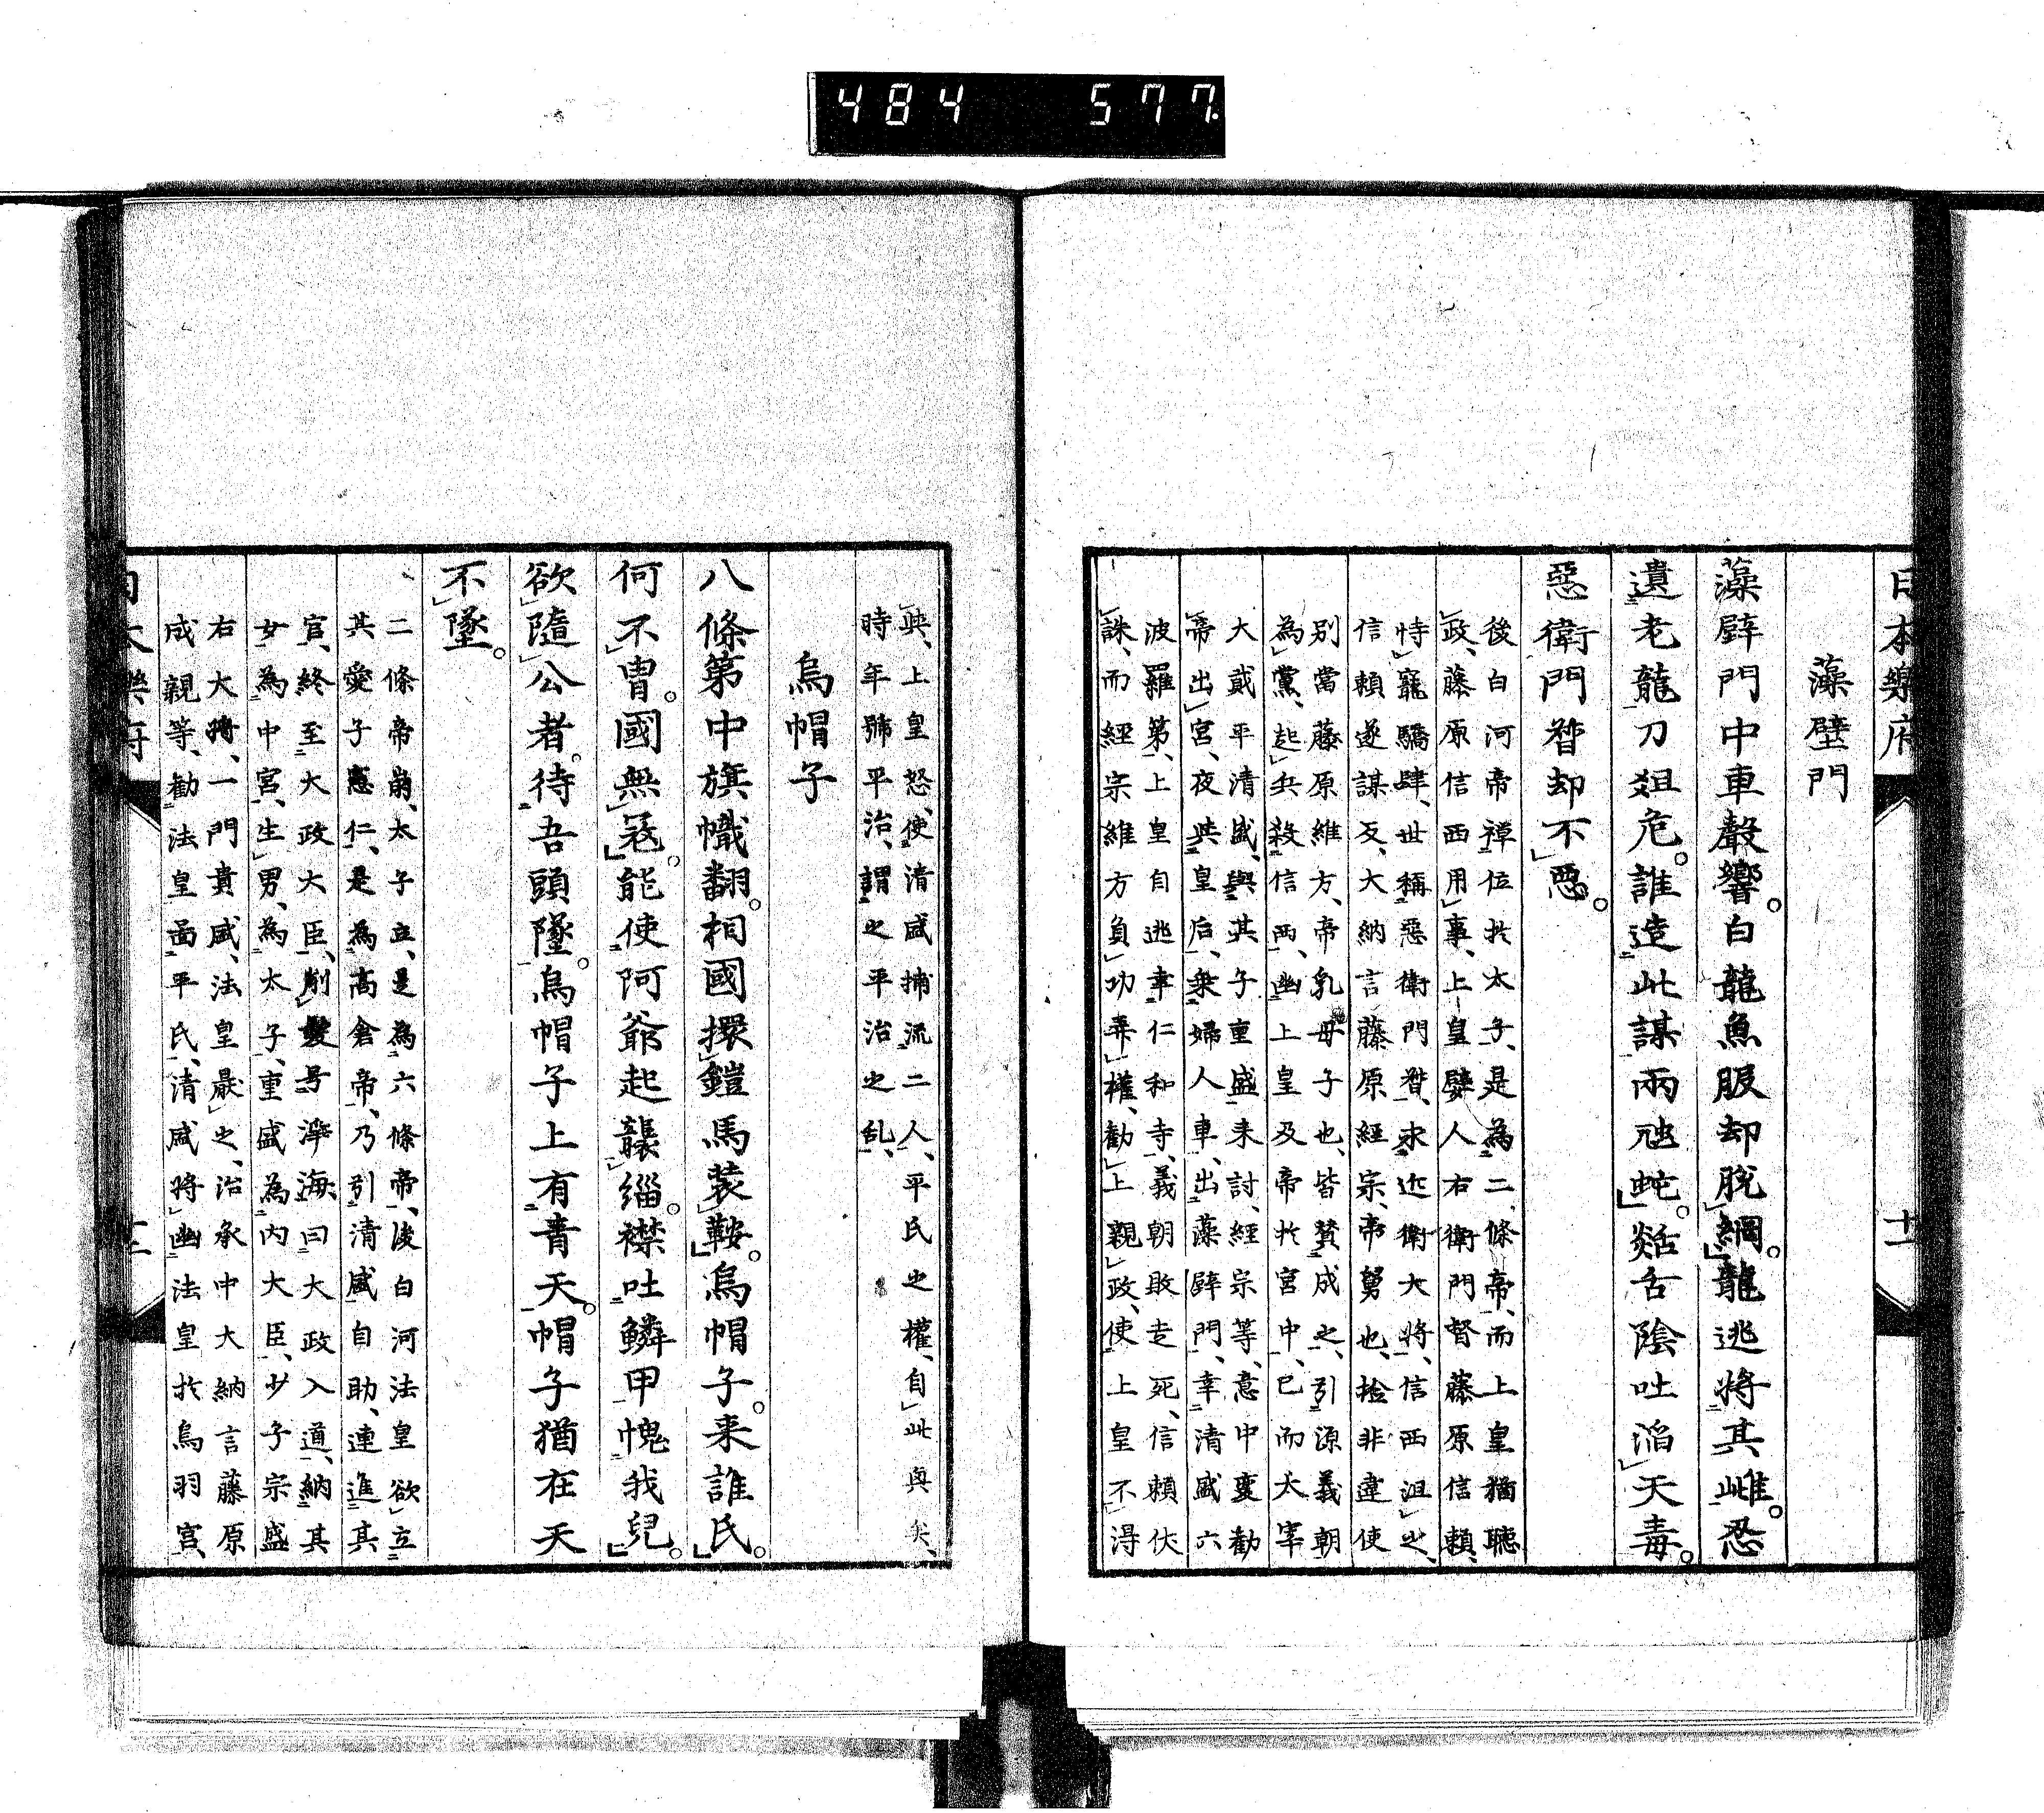 484 577
日本樂府 十二
藻壁門
藻壁門中車聲響。白龍魚服却脫網。龍逃將其雌。忍
遺老龍刀俎危。誰造此謀兩虺蛇。燚舌陰吐滔天毒。
惡衛門督却不惡。
後白河帝禅位於太子、是為二條帝、而上皇猶聽
政、藤原信西用事、上皇嬖人右衛門督藤原信賴、
恃寵驕肆、世稱惡衛門督、求近衛大將、信西沮之、
信賴遂謀反、大納言藤原經宗、帝舅也、撿非違使
別當藤原維方、帝乳母子也、皆賛成之、引源義朝
為黨、起兵殺信西、幽上皇及帝於宮中、已而大宰
大貳平清盛、與其子重盛来討、經宗等、意中変勸
帝出宮、夜與皇后、乗婦人車、出藻壁門、幸清盛六
波羅第、上皇自逃幸仁和寺、義朝敗走死、信賴伏
誅、而經宗維方負功弄權、勸上親政、使上皇不得
與、上皇怒、使清盛捕流二人、平氏之權、自此與矣、
時年號平治、謂之平治之乱、
烏帽子
八條第中旗幟翻。相國擐鎧馬装鞍。烏帽子。来誰氏。
何不冑。國無寇。能使阿爺起襲緇。襟吐鱗甲愧我兒。
欲隨公者。待吾頭墜。烏帽子上有青天。帽子猶在天
不墜。
二條帝崩、太子立、是為六條帝、後白河法皇欲立
其愛子憲仁、是為高倉帝、乃引清盛自助、連進其
官、終至大政大臣、削髮号淨海、曰大政入道、納其
女為中宮、生男、為太子、重盛為内大臣、少子宗盛
右大將、一門貴盛、法皇厭之、治承中大納言藤原
成親等、勸法皇啚平氏、清盛將幽法皇於鳥羽宮、